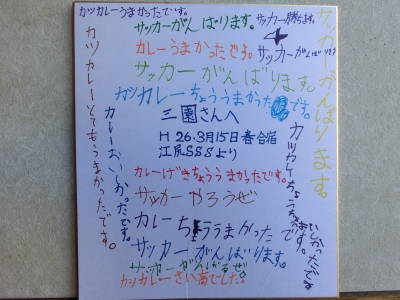 カツカレーうまかったです。
サッカーがんばります。
サッカー勝ちます。
カレーうまかったです。
サッカーがんばります
サッカーがんばります。
カツカレーちょううまかったです。
三園さんへ
H26.3月15日春合宿
江尻SSSより
カレーげきちょううまかったです。
サッカーやろうぜ
カレーちょううまかったで
サッカーがんばります。
サッカーがんばるぜ。
カツカレーさい高でした!
カツカレーとてもうまかったです。
カレーおいしかったです。
サッカーがんばります。